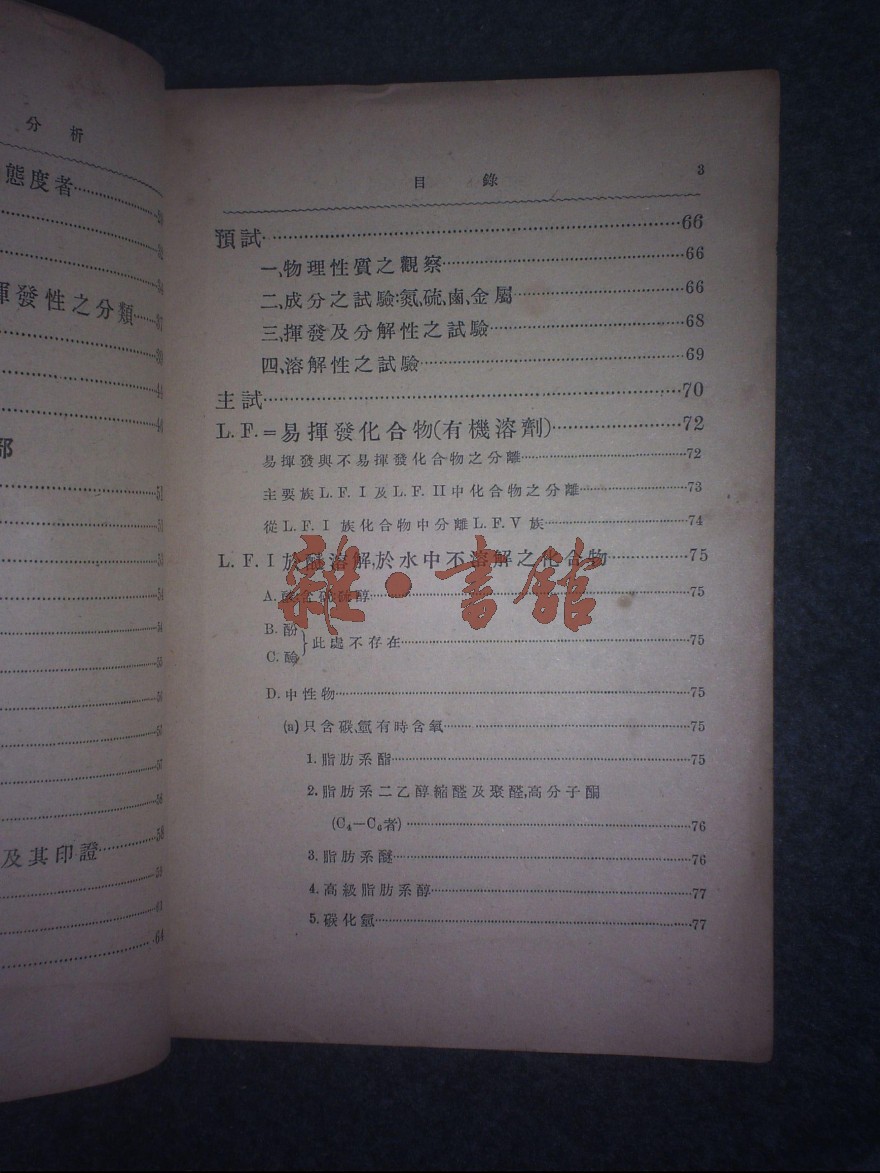 分析
態度者
揮發性之分類
部
51
及其印證
64
目錄 3
預試 66
一、物理性質之觀察 66
二、成分之試驗:氮、硫、鹵、金屬 66
三、揮發及分解性之試驗 68
四、溶解性之試驗 69
主試 70
L. F. = 易揮發化合物(有機溶劑) 72
易揮發與不易揮發化合物之分離 72
主要族 L. F. I 及 L. F. II 中化合物之分離 73
從 L. F. I 族化合物中分離 L. F. V 族 74
L. F. I 於醚溶解,於水中不溶解之化合物 75
A. 酸 硫醇 75
B. 酚
C. 酸
}此處不存在 75
D. 中性物 75
(a) 只含碳、氫有時含氧 75
1. 脂肪系酯 75
2. 脂肪系二乙醇縮醛及聚醛,高分子酮
(C₄—C₆者) 76
3. 脂肪系醚 76
4. 高級脂肪系醇 77
5. 碳化氫 77
雜·書館